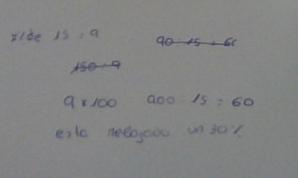 15 : 9
90 15 : 6
150 : 9
9 x 100 900 15 : 60
esta rebajado un 30%